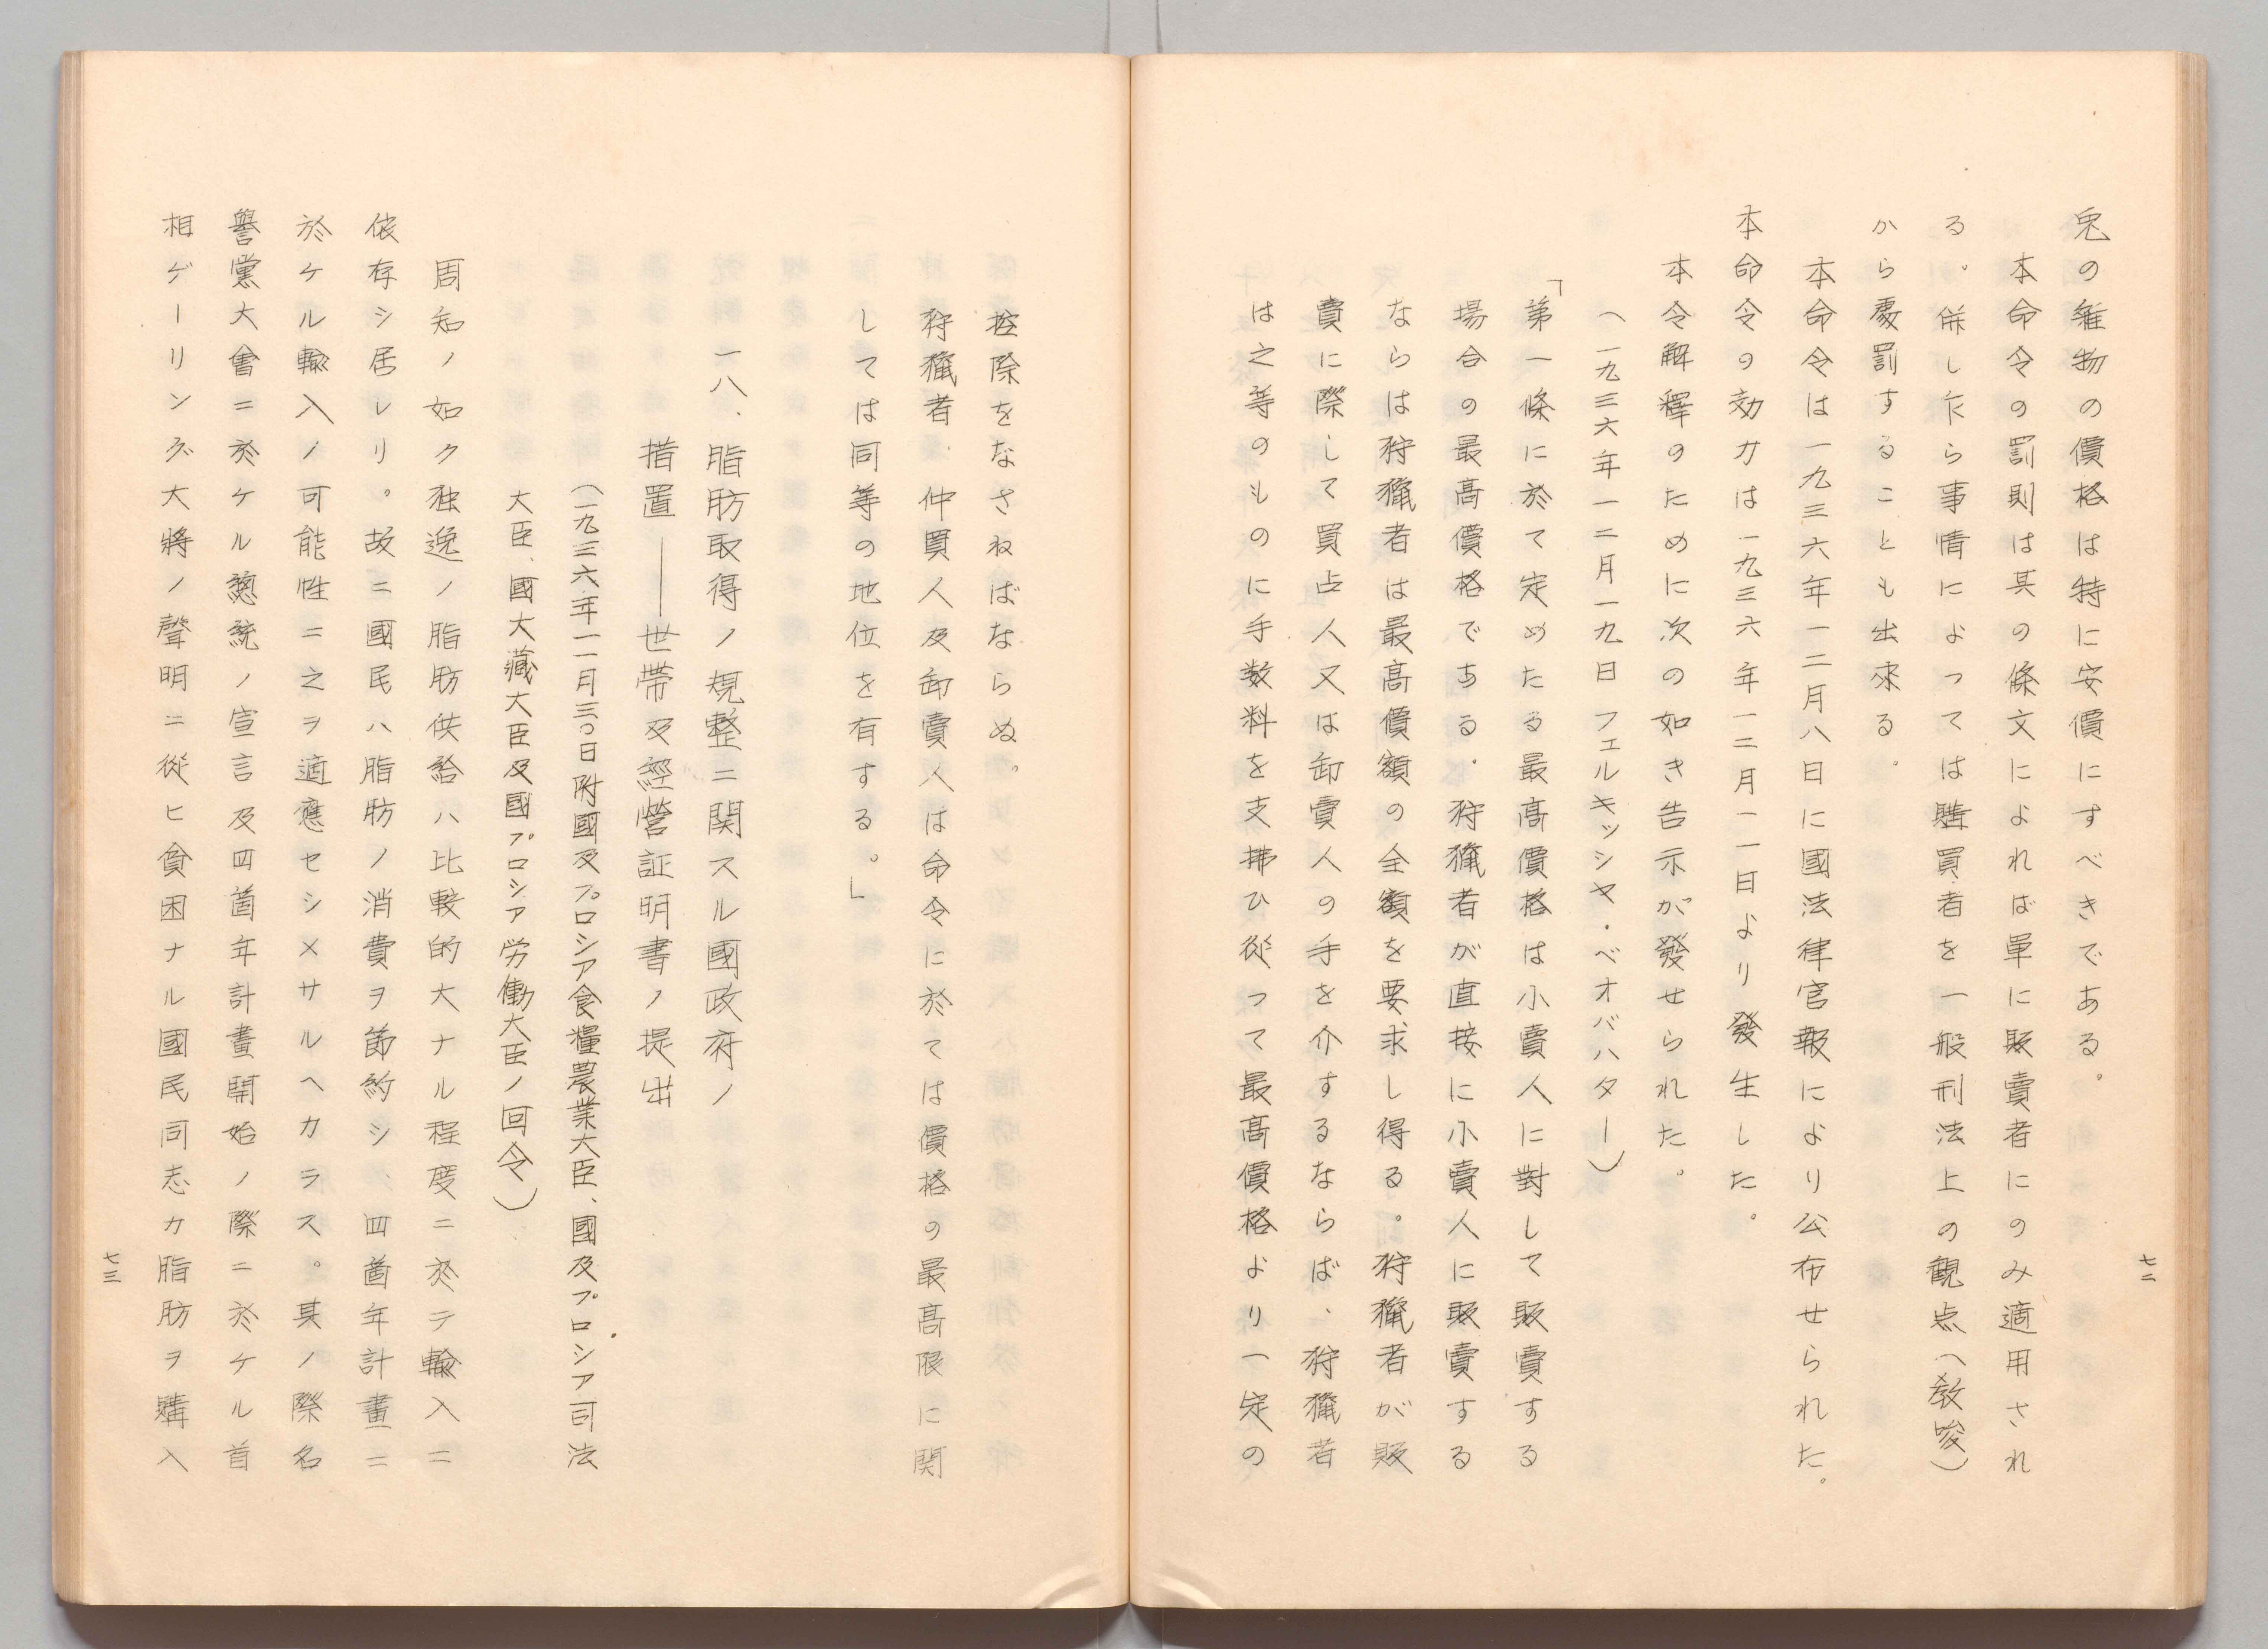 兎の雑物の價格は特に安價にすべきである。
本命令の罰則は其の條文によれば單に販賣者にのみ適用され
る。併し乍ら事情によっては購買者を一般刑法上の観点(教唆)
から處罰することも出来る。
本命令は一九三六年一二月八日に國法律官報により公布せられた。
本命令の効力は一九三六年一二月一一日より發生した。
本令解釋のために次の如き告示が發せられた。
(一九三六年一二月一九日フェルキッシヤ・ベオバハター)
「第一條に於て定めたる最高價格は小賣人に對して販賣する
場合の最高價格である。狩獵者が直接に小賣人に販賣する
ならは狩獵者は最高價額の全額を要求し得る。狩獵者が販
賣に際して買占人又は卸賣人の手を介するならば、狩獵者
は之等のものに手数料を支拂ひ從って最高價格より一定の
七二
控除をなさねばならぬ。
狩獵者、仲買人及卸賣人は命令に於ては價格の最高限に関
しては同等の地位を有する。」
一八、脂肪取得ノ規整ニ関スル國政府ノ
措置――世帶及經營証明書ノ提出
(一九三六年一一月三〇日附國及プロシア食糧農業大臣、國及プロシア司法
大臣、國大藏大臣及國プロシア労働大臣ノ回令)
周知ノ如ク独逸ノ脂肪供給ハ比較的大ナル程度ニ於テ輸入ニ
依存シ居レリ。故ニ國民ハ脂肪ノ消費ヲ節約シ、四箇年計畫ニ
於ケル輸入ノ可能性ニ之ヲ適應セシメサルヘカラス。其ノ際名
譽黨大會ニ於ケル總統ノ宣言及四箇年計畫開始ノ際ニ於ケル首
相ゲーリング大將ノ聲明ニ從ヒ貧困ナル國民同志カ脂肪ヲ購入
七三